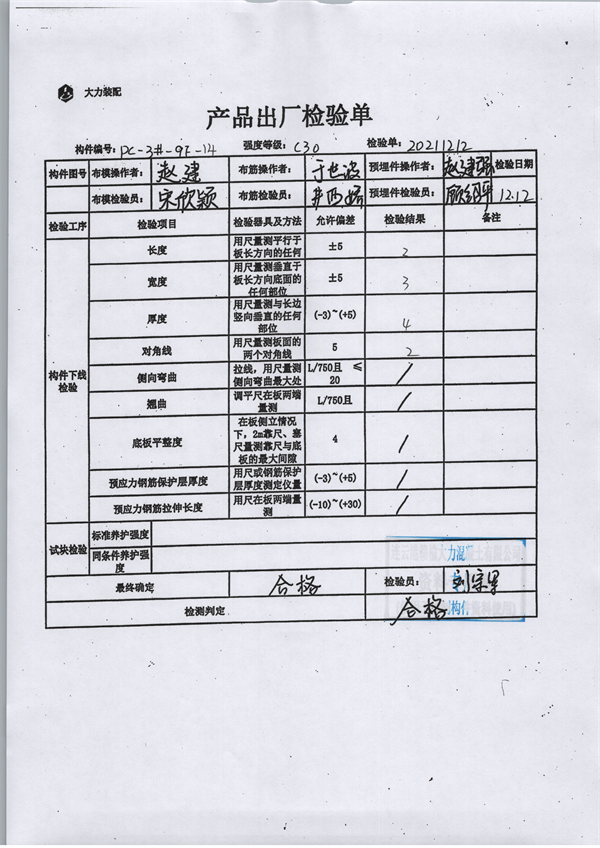 大力装配
产品出厂检验单
构件编号: PC-3#-9F-14 强度等级: C30 检验单: 20211212
构件图号 布模操作者: 赵建 布筋操作者: 于世波 预埋件操作者: 赵建强 检验日期
布模检验员: 宋欣颖 布筋检验员: 预埋件检验员: 12.12
检验工序 检验项目 检验器具及方法 允许偏差 检验结果 备注
构件下线检验
长度 用尺量测平行于板长方向的任何 ±5 2
宽度 用尺量测垂直于板长方向底面的任何部位 ±5 3
厚度 用尺量测与长边竖向垂直的任何部位 (-3)~(+5) 4
对角线 用尺量测板面的两个对角线 5 2
侧向弯曲 拉线，用尺量测侧向弯曲最大处 L/750且 ≤20 /
翘曲 调平尺在板两端量测 L/750且 /
底板平整度 在板侧立情况下，2m靠尺、塞尺量测靠尺与底板的最大间隙 4 /
预应力钢筋保护层厚度 用尺或钢筋保护层厚度测定仪量 (-3)~(+5) /
预应力钢筋拉伸长度 用尺在板两端量测 (-10)~(+30) /
试块检验 标准养护强度
同条件养护强度
最终确定 合格 检验员:
检测判定 合格